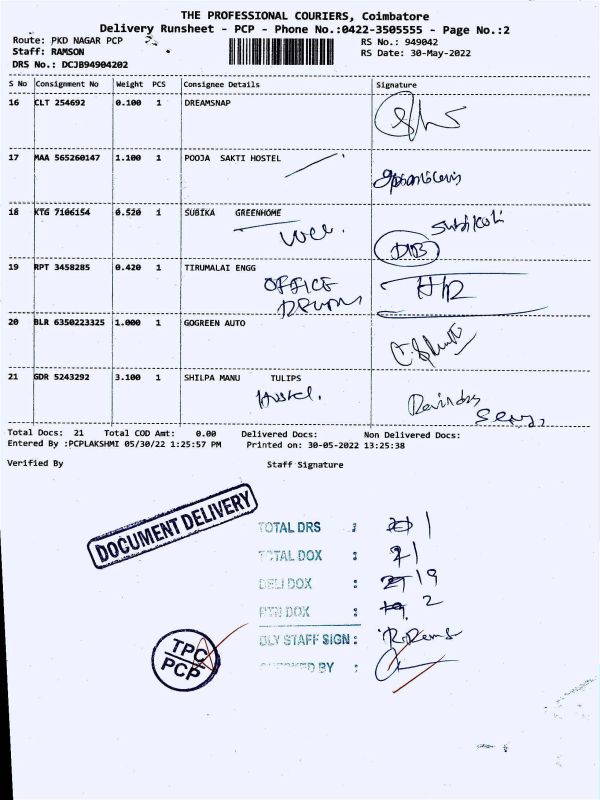 THE PROFESSIONAL COURIERS, Coimbatore
Delivery Runsheet - PCP - Phone No.:0422-3505555 - Page No.:2
Route: PKD NAGAR PCP
RS No.: 949042
Staff: RAMSON
RS Date: 30-May-2022
DRS No.: DCJB94904202
S No Consignment No Weight PCS Consignee Details Signature
16 CLT 254692 0.100 1 DREAMSNAP
17 MAA 565260147 1.100 1 POOJA SAKTI HOSTEL
18 KTG 7106154 0.520 1 SUBIKA GREENHOME
19 RPT 3458285 0.420 1 TIRUMALAI ENGG
OFFICE
20 BLR 6350223325 1.000 1 GOGREEN AUTO
21 GDR 5243292 3.100 1 SHILPA MANU TULIPS
Hostel.
Total Docs: 21 Total COD Amt: 0.00 Delivered Docs: Non Delivered Docs:
Entered By :PCPLAKSHMI 05/30/22 1:25:57 PM Printed on: 30-05-2022 13:25:38
Verified By Staff Signature
DOCUMENT DELIVERY
TOTAL DRS : 1
TOTAL DOX : 21
DELI DOX : 19
RTN DOX : 2
DLY STAFF SIGN :
CHECKED BY :
TPC
PCP